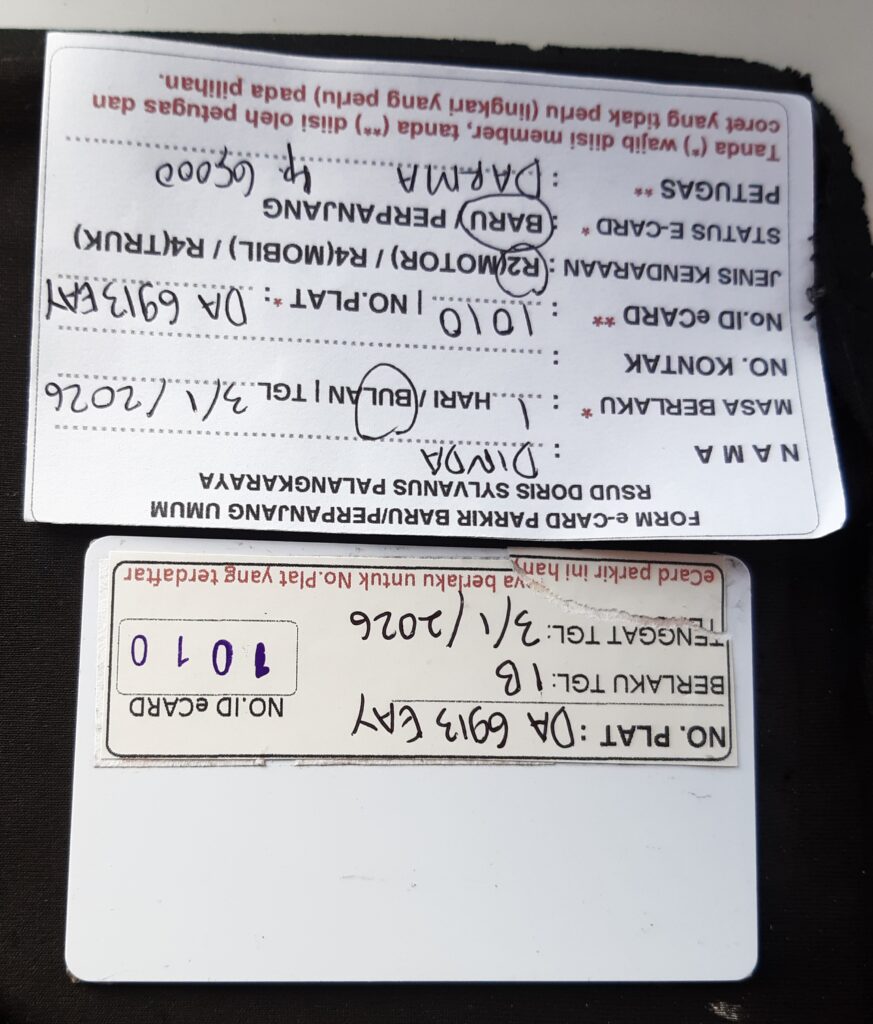 FORM e-CARD PARKIR BARU/PERPANJANG UMUM
RSUD DORIS SYLVANUS PALANGKARAYA
N A M A : DINDA
MASA BERLAKU * : 1 HARI / BULAN | TGL 3/1/2026
NO. KONTAK :
No.ID eCARD ** : 1010 | NO.PLAT * : DA 6913 EAY
JENIS KENDARAAN : R2(MOTOR) / R4(MOBIL) / R4(TRUK)
STATUS E-CARD * : BARU / PERPANJANG
PETUGAS ** : DARMA Rp. 65000
Tanda (*) wajib diisi member, tanda (**) diisi oleh petugas dan
coret yang tidak perlu (lingkari yang perlu) pada pilihan.
NO. PLAT : DA 6913 EAY
NO.ID eCARD
BERLAKU TGL: 1 B
1010
TENGGAT TGL: 3/1/2026
eCard parkir ini han ya berlaku untuk No.Plat yang terdaftar